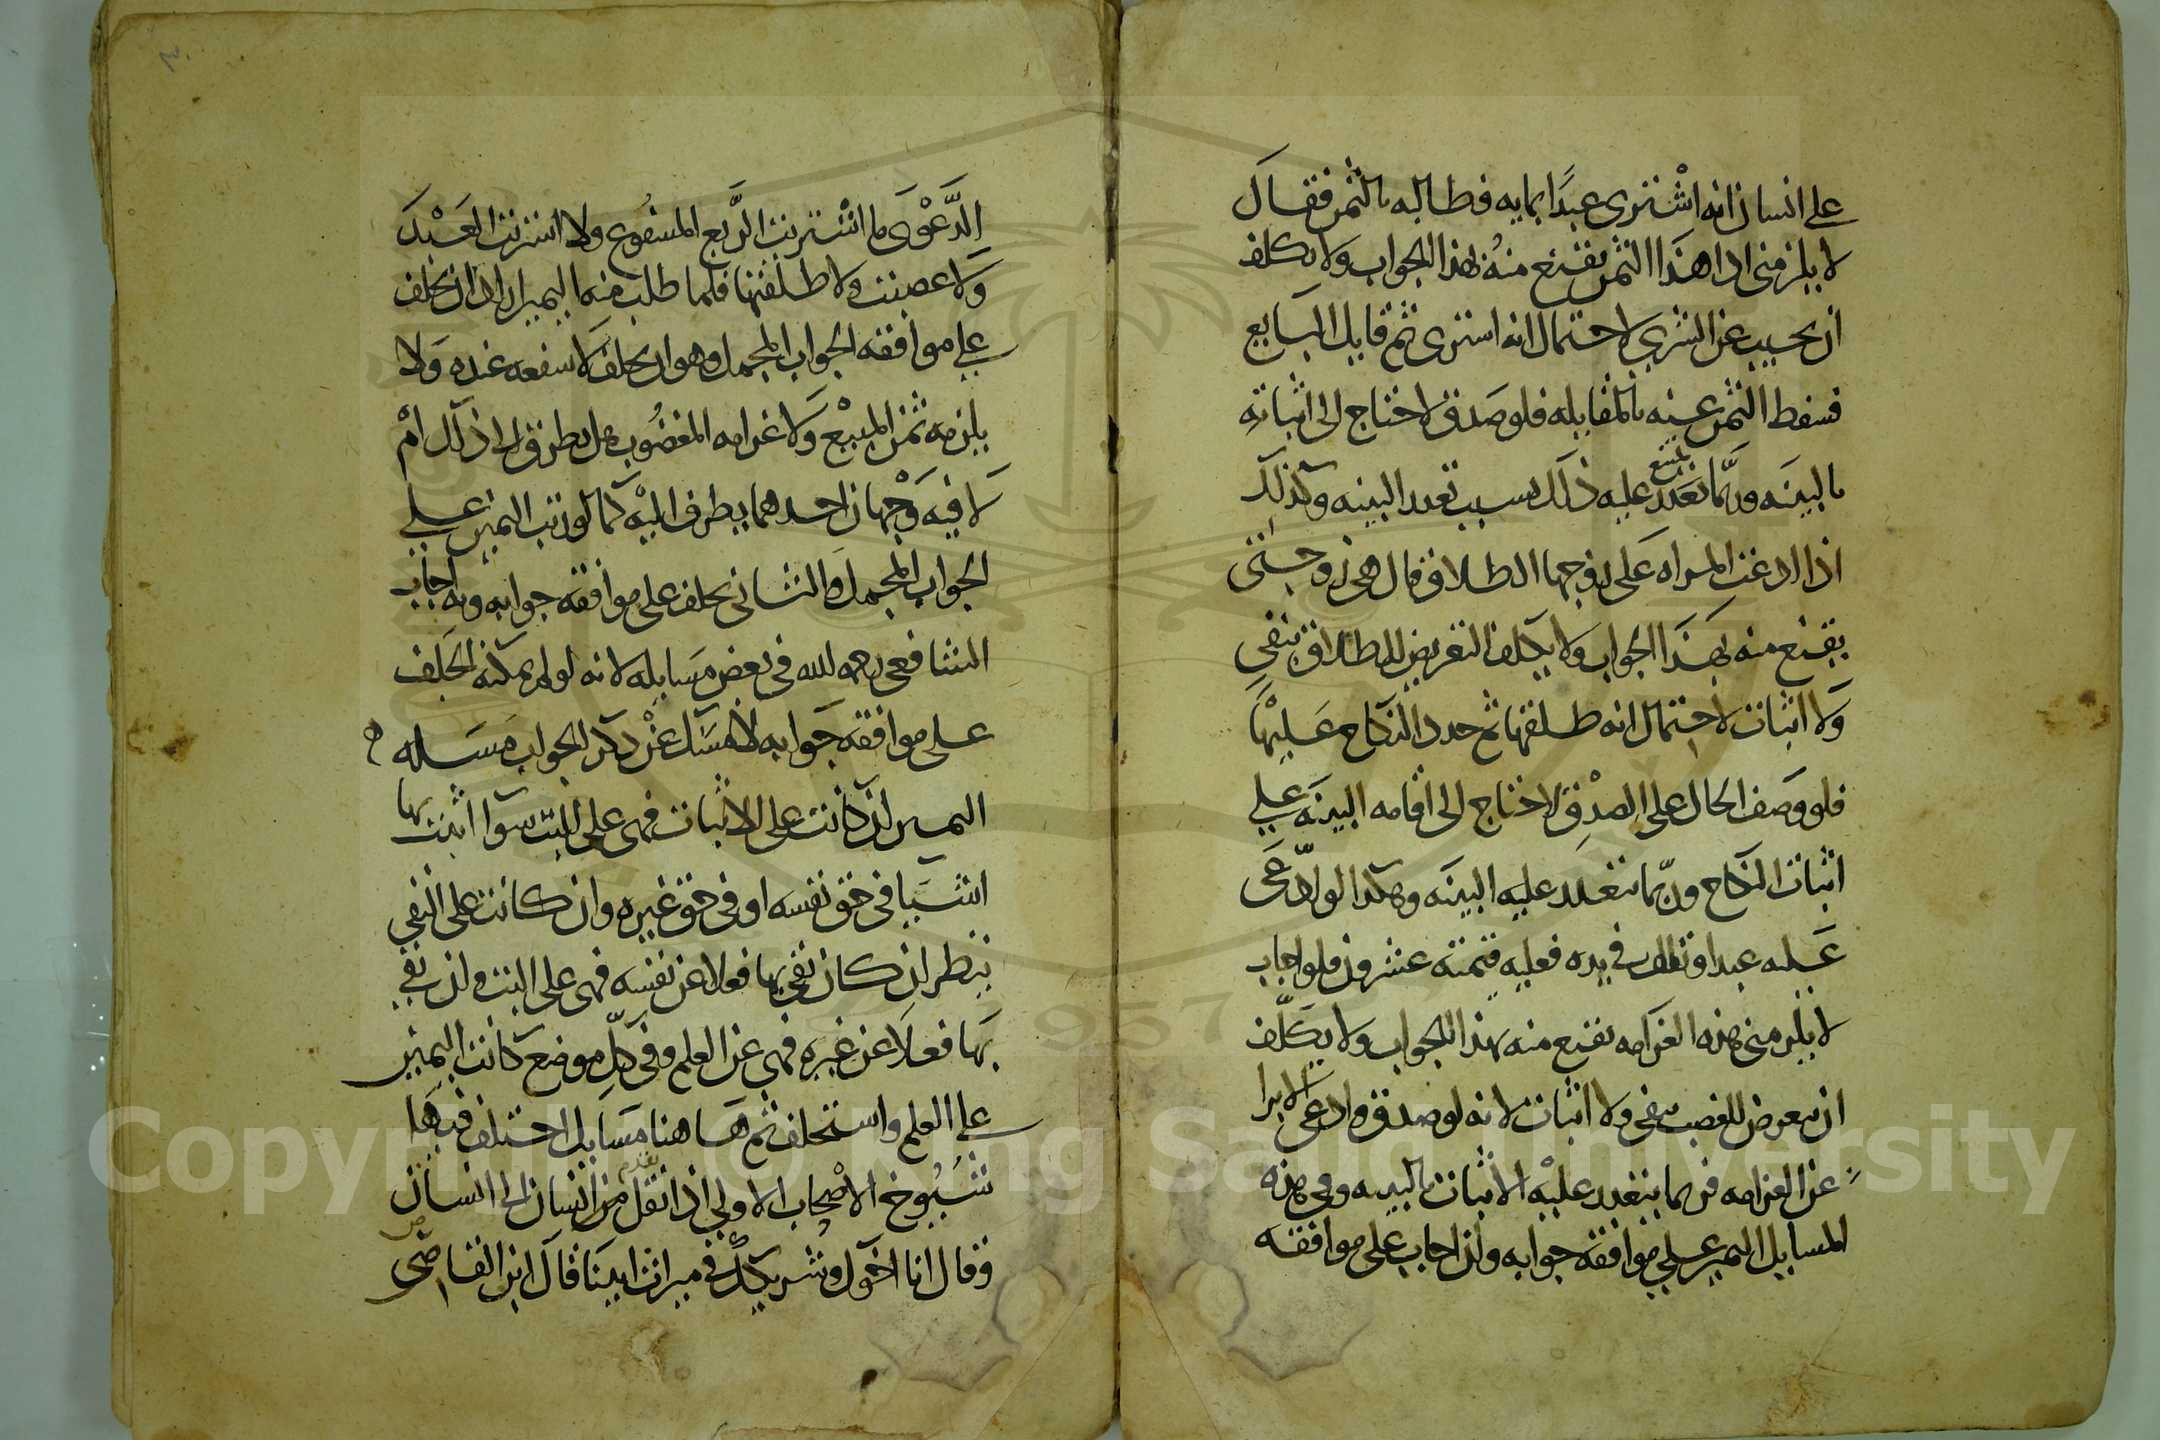 على انسان انه اشترى عبدًا بمايه فطالبه بالثمن فقال
لا يلزمنى اداهذا الثمن يقنع منه بهذا الجواب ولا يكلف
ان يجيب عن الشرى لاحتمال انه اشترى ثم قايل البايع
فسقط الثمن عنه بالمقايله فلو صدق لاحتاج الى اثباته
بالبينه وربما تعذر عليه ذلك بسبب تعدد البينه وكذلك
يمتنع
اذا ادعت المراه على زوجها الطلاق قال هى زوجتى
يقنع منه بهذا الجواب ولا يكلف التعريض للطلاق بنفى
ولا اثبات لاحتمال انه طلقها ثم جدد النكاح عليها
فلو وصف الحال على الصدق لاحتاج الى اقامه البينه على
اثبات النكاح وربما تتعذر عليه البينه وهكذا لو ادعى
عليه عبدا وتلف فى يده فعليه قيمته عشرون فلو اجاب
لا يلزمنى هذه الغرامه يقنع منه بهذا الجواب ولا يكلف
ان يتعرض للغصب بنفى ولا اثبات لانه لو صدق وادعى الابرا
عن الغرامه فربما يتعذر عليه الاثبات بالبينه وفى هذه
المسايل اليمين على موافقه جوابه وان اجاب على موافقه
الدعوى ما اشتريت الربع المشفوع ولا اشتريت العبد
ولا غصبت ولا طلقتها فلما طلب منه اليمين اراد ان يحلف
على موافقه الجواب المجمل وهو ان يحلف لا شفعه عنده ولا
يلزمه ثمن المبيع ولا غرامه المغصوب هل يطرق الى ذلك ام
لا فيه وجهان احدهما يطرق اليه كما لو رتب اليمين على
الجواب المجمل والثانى يحلف على موافقه جوابه وبه اجاب
الشافعى رحمه الله فى بعض مسايله لانه لو لم يمكنه الحلف
على موافقه جوابه لامسك عن ذكر الجواب مسله
اليمين ان كانت على الاثبات فهى على البت سوا اثبت بها
اشيا فى حق نفسه او فى حق غيره وان كانت على النفى
ينظر ان كان نفى بها فعلا عن نفسه فهى على البت وان نفى
بها فعلا عن غيره فهى عن العلم وفى كل موضع كانت اليمين
على العلم واستحلف ثم هاهنا مسايل اختلف فيها
شيوخ الاصحاب الاولى اذا تقدم من انسان الى انسان
وقال انا اخوك وشريكك فى ميراث ابينا قال ابن القاضى